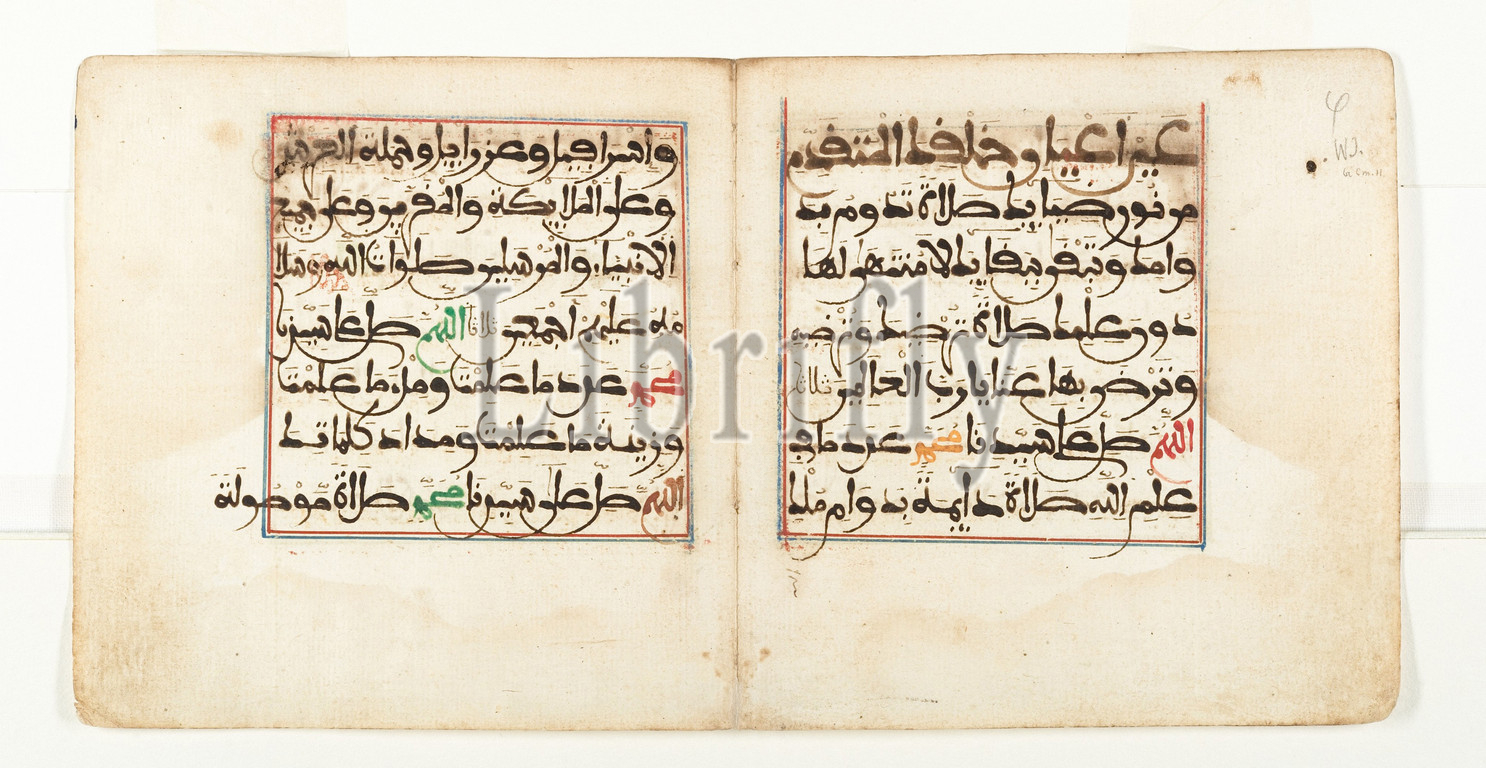 عين اعيان خلقك المتقدم
من نور ضيايك صلاة تدوم بد
وامك وتبقى ببقايك لا منتهى لها
دون علمك صلاة ترضيك وترضيه
وترضى بها عنا يا رب العالمين ثلاثا
اللهم صل على سيدنا محمد عدد ما في
علم الله صلاة دايمة بدوام ملك
واسرافيل وعزرايل وحملة العرش
وعلى الملايكة والمقربين وعلى جميع
الانبياء والمرسلين صلوات الله وسلا
مه عليهم اجمعين ثلاثا اللهم صل على سيدنا
محمد عدد ما علمت وملء ما علمت
وزنة ما علمت ومداد كلماتك
اللهم صل على سيدنا محمد صلاة موصولة
Librifly